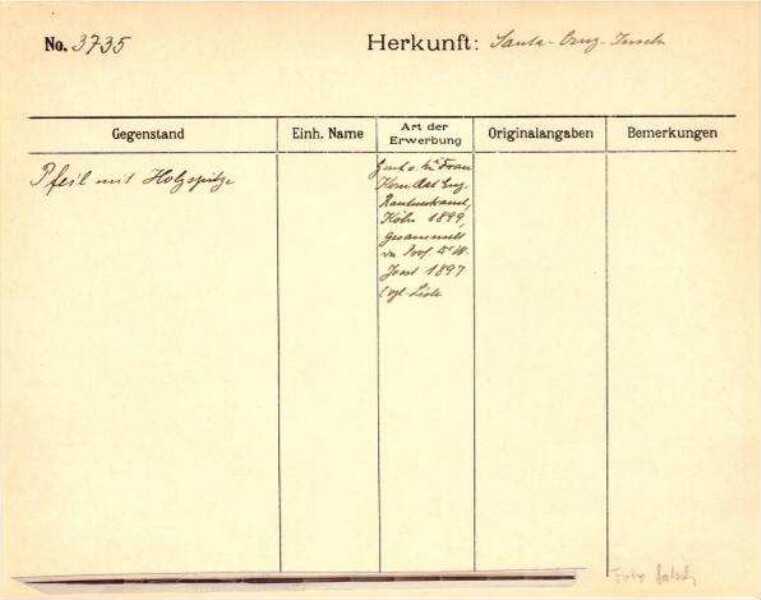 No. 3735 Herkunft: Santa-Cruz-Inseln
Gegenstand Einh. Name Art der Erwerbung Originalangaben Bemerkungen
Pfeil mit Holzspitze
Frau
Eug.
Rautenstrauch,
Köln 1899,
gesammelt
von Prof. Dr W.
Joest 1897
(vgl. Liste
Foto